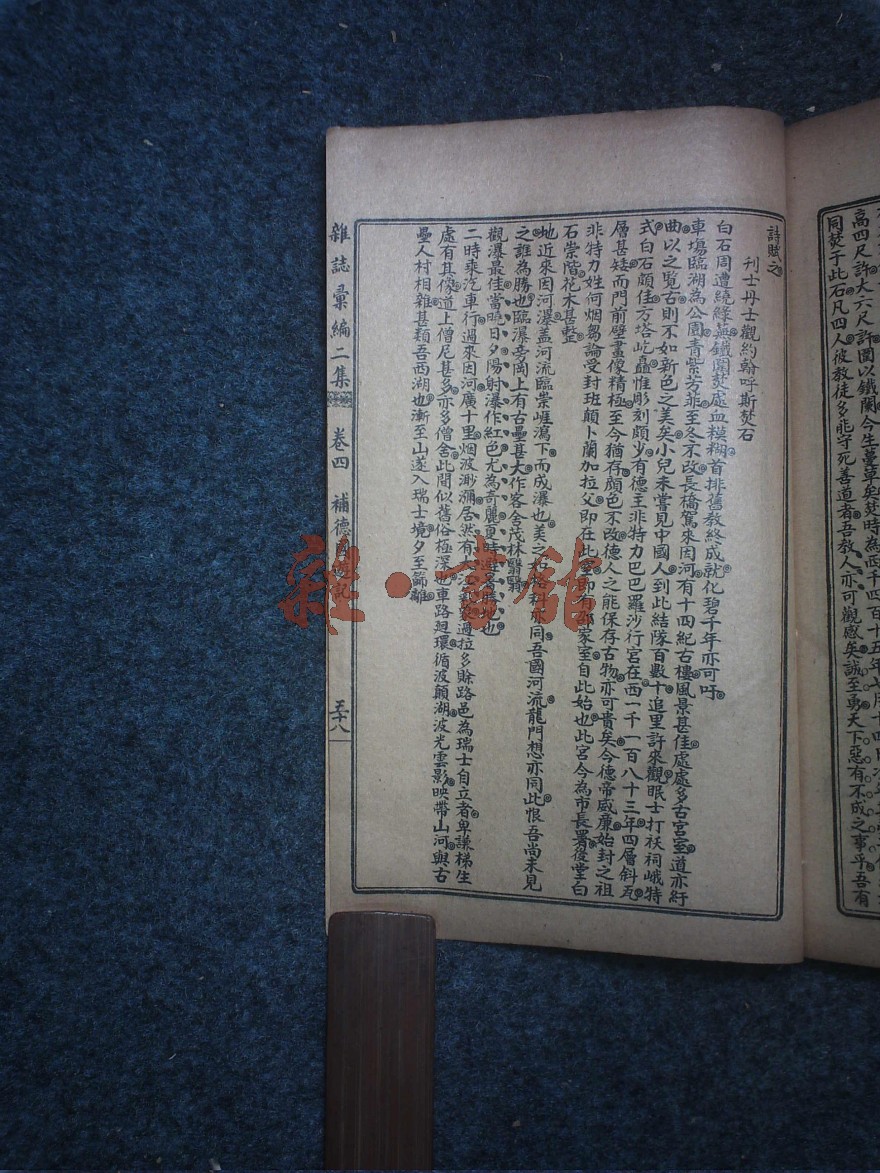 同焚于此石凡四人彼教徒多能守死善道者吾教人亦可觀感矣誠至勇天下惡有不成之事乎吾有
詩賦之
利士丹士觀約翰呼斯焚石
白石周遭繞綠蕪鐵闌焚處血模糊首排舊教終成就化碧千年亦可吁
車塲臨湖為公園青紫芳菲至冬不改長橋駕來因河有十四紀古樓風景甚佳處處多古宮室道亦紆
曲以之覽古則不如新色之美矣小兒未嘗見中國人到此結隊百數十追里許來觀眠士打袄祠峨特
式白石頗佳方塔屹矗惟彫刻頗少有德主非特力巴巴羅沙行宮在西一千一百八十三年四層斜瓦
層甚矮而門前壁畫像精極至今猶存顏色不改德人之能保存古物亦可貴矣今德帝威廉始封之祖
非特力姓何烟芻論受封班顛卜蘭加拉父即在此
家室自此始也此宮今為市長署後堂白
石崇階花木甚整
地近來因河瀑蓋河流臨崇崕瀉下而成瀑也美之
亦同吾國河流龍門想亦同此恨吾尚未見
之誰為勝也臨瀑旁岡上有古壘甚大作客舍茂林翳翳
觀瀑最佳當曉日夕陽射瀑作紅色尤為奇麗更時
也
二時乘汽車行過來因河廣十里烟波渺瀰居然有
過拉多賒路邑為瑞士自立者卑謙梯生
處有其像道上僧尼甚多亦多僧舍此間似舊俗極深也車路廻環循波顛湖波光雲影映帶山河與古
壘人村相雜甚類吾西湖也漸至山遂入瑞士境夕至篩離
雜誌彙編二集 卷四 補德國遊記 五十八
雜·書館